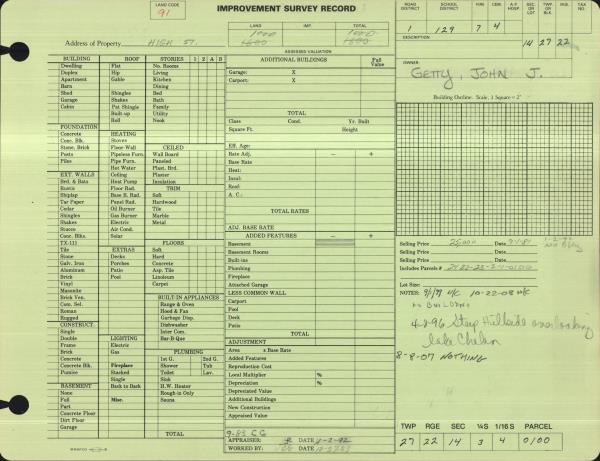 LAND CODE
91
IMPROVEMENT SURVEY RECORD
LAND IMP. TOTAL
1000 1000
1600 1600
Address of Property HIGH ST.
ASSESSED VALUATION
ROAD DISTRICT SCHOOL DISTRICT FIRE CEM. A.P. HOSP. SEC OR LOT TWP. OR BLK. RGE. TAX NO.
1 129 7 4
DESCRIPTION
14 27 22
OWNER:
GETTY, JOHN J.
Building Outline: Scale, 1 Square = 2'
BUILDING ROOF STORIES 1 2 A B
Dwelling Flat No. Rooms
Duplex Hip Living
Apartment Gable Kitchen
Barn Dining
Shed Shingles Bed
Garage Shakes Bath
Cabin Pat Shingle Family
Built up Utility
Roll Nook
FOUNDATION
Concrete HEATING
Conc. Blk. Stoves CEILED
Stone, Brick Floor Wall Wall Board
Posts Pipeless Furn. Paneled
Piles Pipe Furn. Plast. Brd.
Hot Water Plaster
EXT. WALLS Ceiling Insulation
Brd. & Bats Heat Pump TRIM
Rustic Floor Rad. Soft
Shiplap Base B. Rad. Hardwood
Tar Paper Panel Rad. Tile
Cedar Oil Burner Marble
Shingles Gas Burner Metal
Shakes Electric
Stucco Air Cond.
Conc. Blks. Solar FLOORS
TX-111
Tile EXTRAS Soft
Stone Decks Hard
Galv. Iron Porches Concrete
Aluminum Patio Asp. Tile
Brick Pool Linoleum
Vinyl Carpet
Masonite
Brick Ven. BUILT-IN APPLIANCES
Com. Sel. Range & Oven
Roman Hood & Fan
Rugged Garbage Disp.
CONSTRUCT. Dishwasher
Single Inter Com.
Double LIGHTING Bar-B-Que
Frame Electric
Brick Gas PLUMBING
Concrete 1st G. 2nd G.
Concrete Blk. Fireplace Shower Tub
Pumice Stacked Toilet Lav.
Single Sink
BASEMENT Back to Back H.W. Heater
None Rough-in Only
Full Misc. Sauna
Part
Concrete Floor
Dirt Floor
Garage
TOTAL
ADDITIONAL BUILDINGS Full Value
Garage: X
Carport: X
TOTAL
Class Cond. Yr. Built
Square Ft. Height
Eff. Age:
Rate Adj. − +
Base Rate
Heat:
Insul:
Roof:
A. C.:
TOTAL RATES
ADJ. BASE RATE
ADDED FEATURES − +
Basement
Basement Rooms
Built-ins
Plumbing
Fireplace
Attached Garage
LESS COMMON WALL
Carport
Pool
Deck
Patio
TOTAL
ADJUSTMENT
Area x Base Rate
Added Features
Reproduction Cost
Local Multiplier %
Depreciation %
Depreciated Value
Additional Buildings
New Construction
Appraised Value
9-83 CG
APPRAISER: DATE
WORKED BY: DATE
Selling Price 25,000 Date
Selling Price Date
Includes Parcels #
Lot Size:
NOTES: N/C 10-22-03 N/C
NO BUILDING
4-2-96 Steep Hillside overlooking
lake Chelan
8-8-07 NOTHING
TWP RGE SEC ¼S 1/16 S PARCEL
27 22 14 3 4 0100